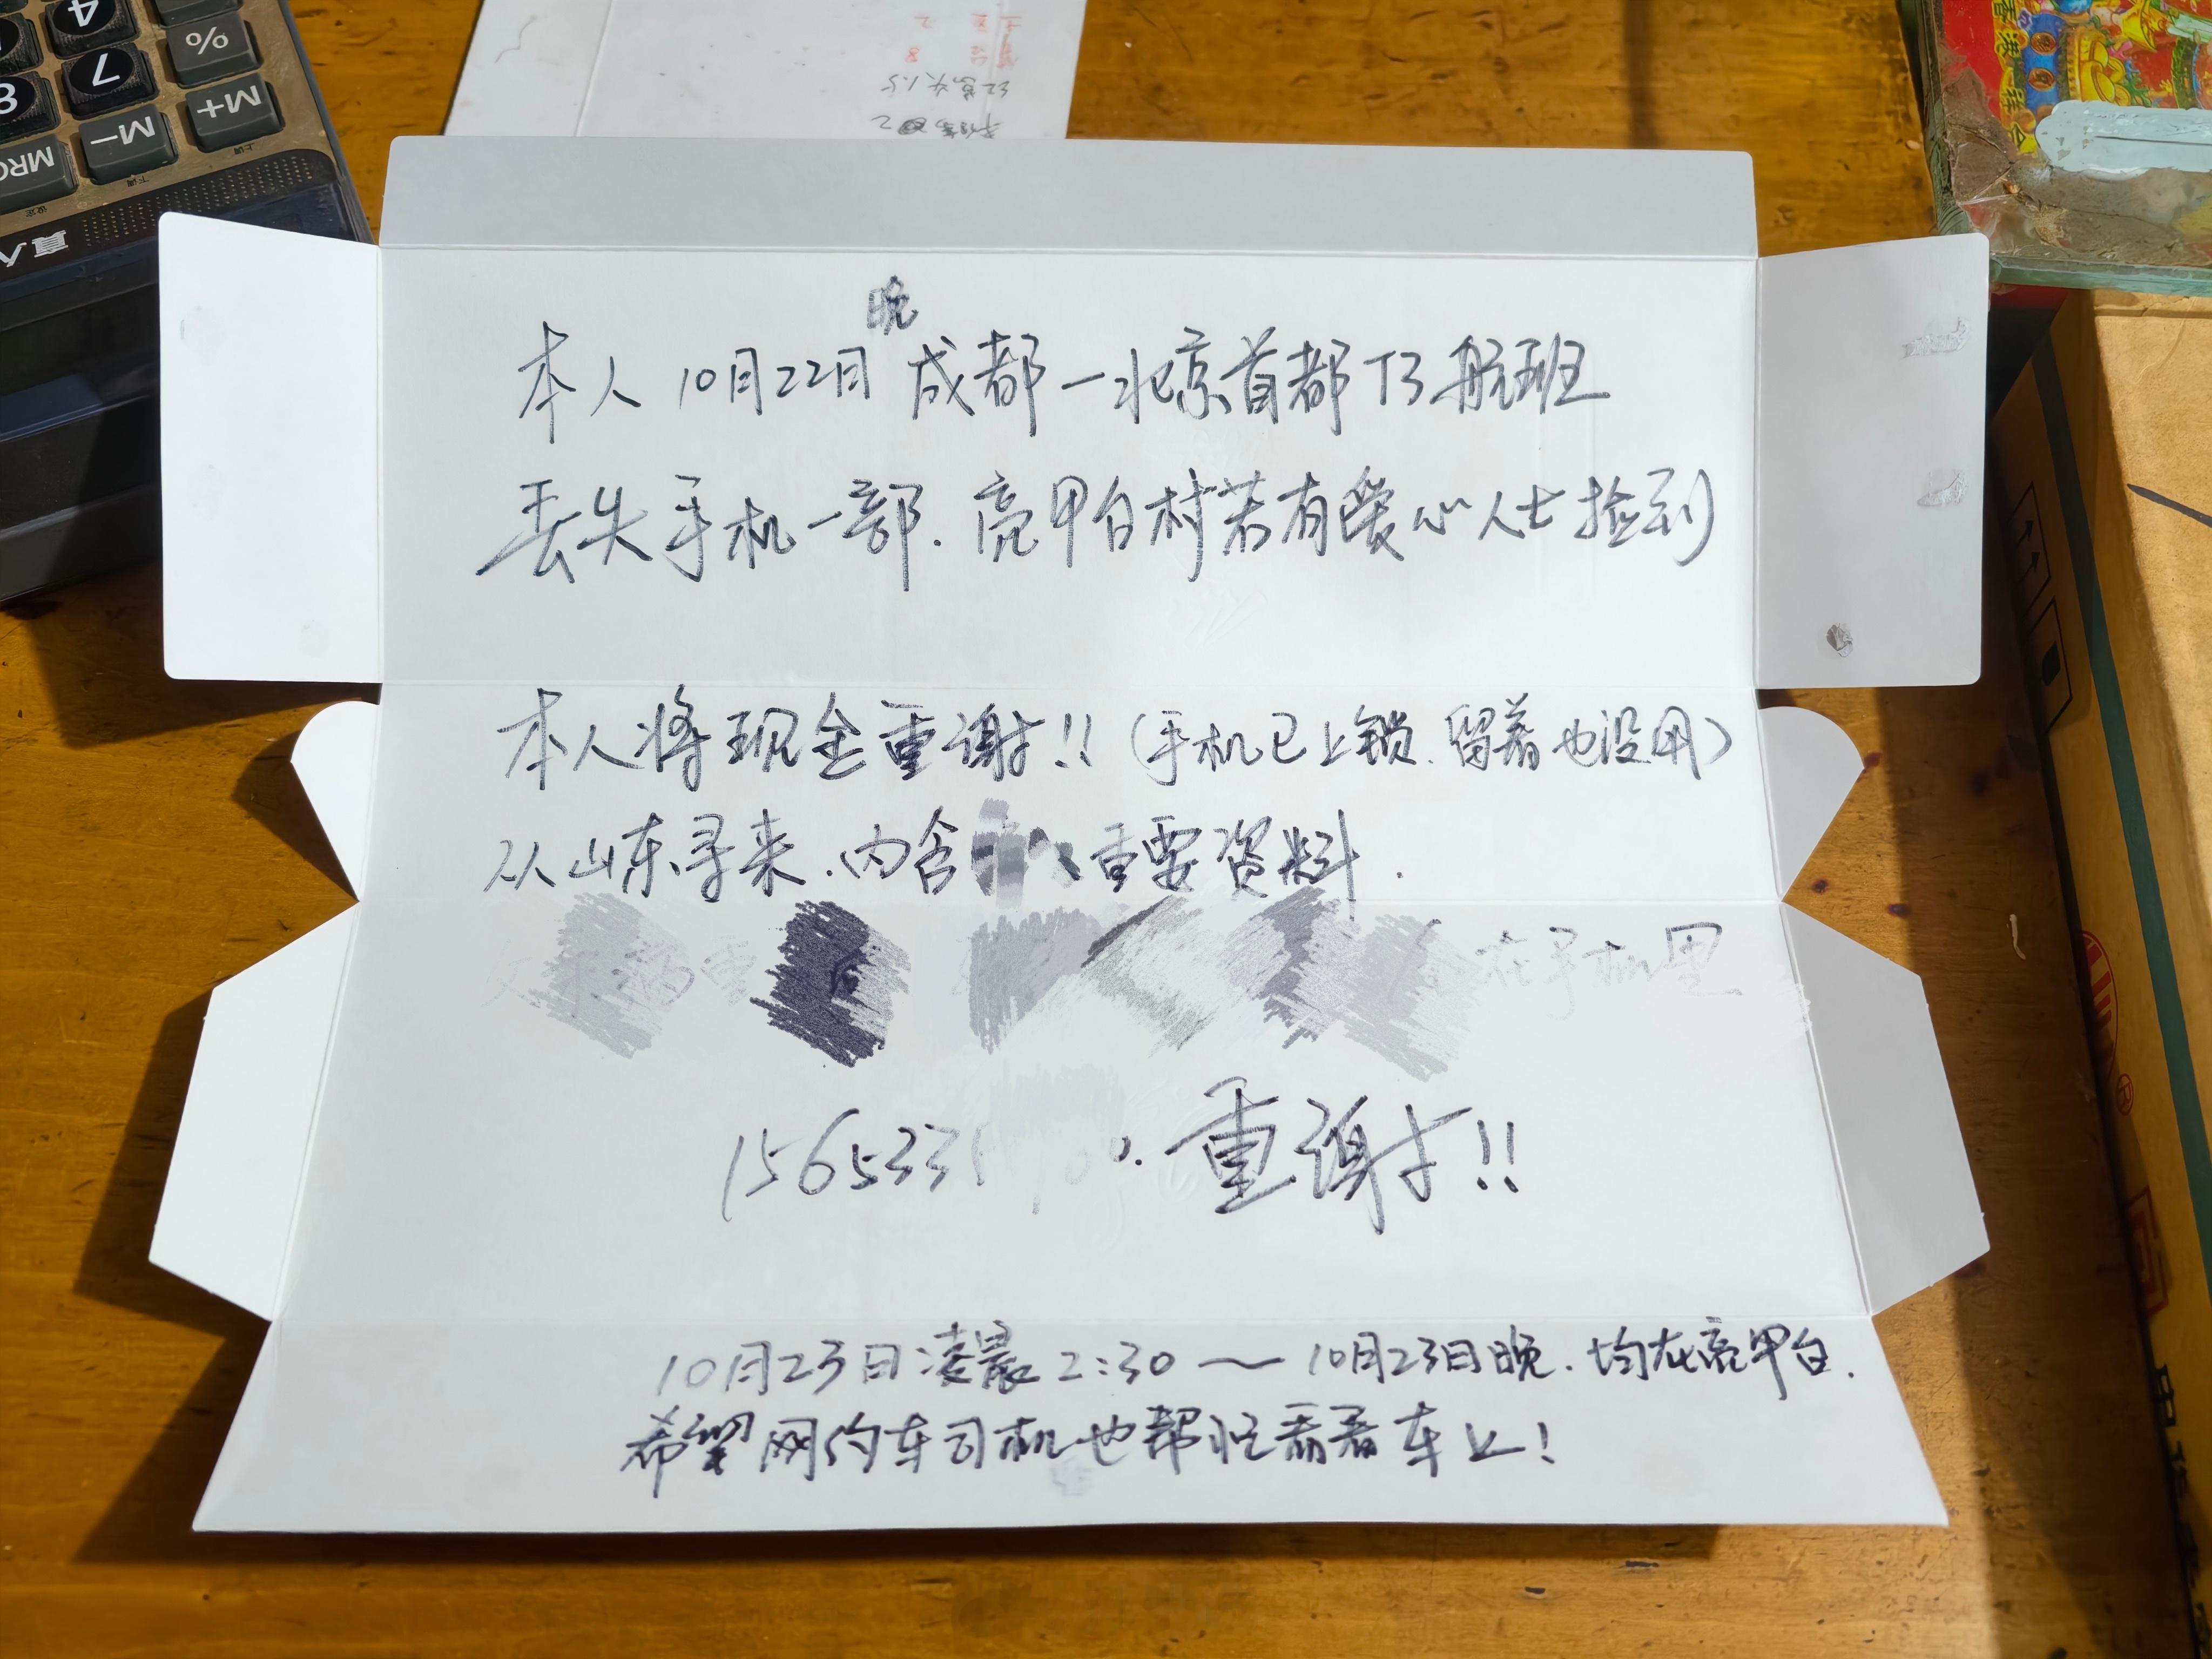 %
4
7
8
M+
M-
MRC
上调
下调
设定
真人
2
8
1.5
2
香港
晚
本人 10月22日 成都—北京首都T3航班
丢失手机一部.亮甲台村若有爱心人士捡到
本人将现金重谢!!(手机已上锁.留着也没用)
从山东寻来.内含 重要资料.
在手机里
1565331 重谢!!
10月23日凌晨2:30～10月23日晚.均在亮甲台.
希望网约车司机也帮忙看看车上!